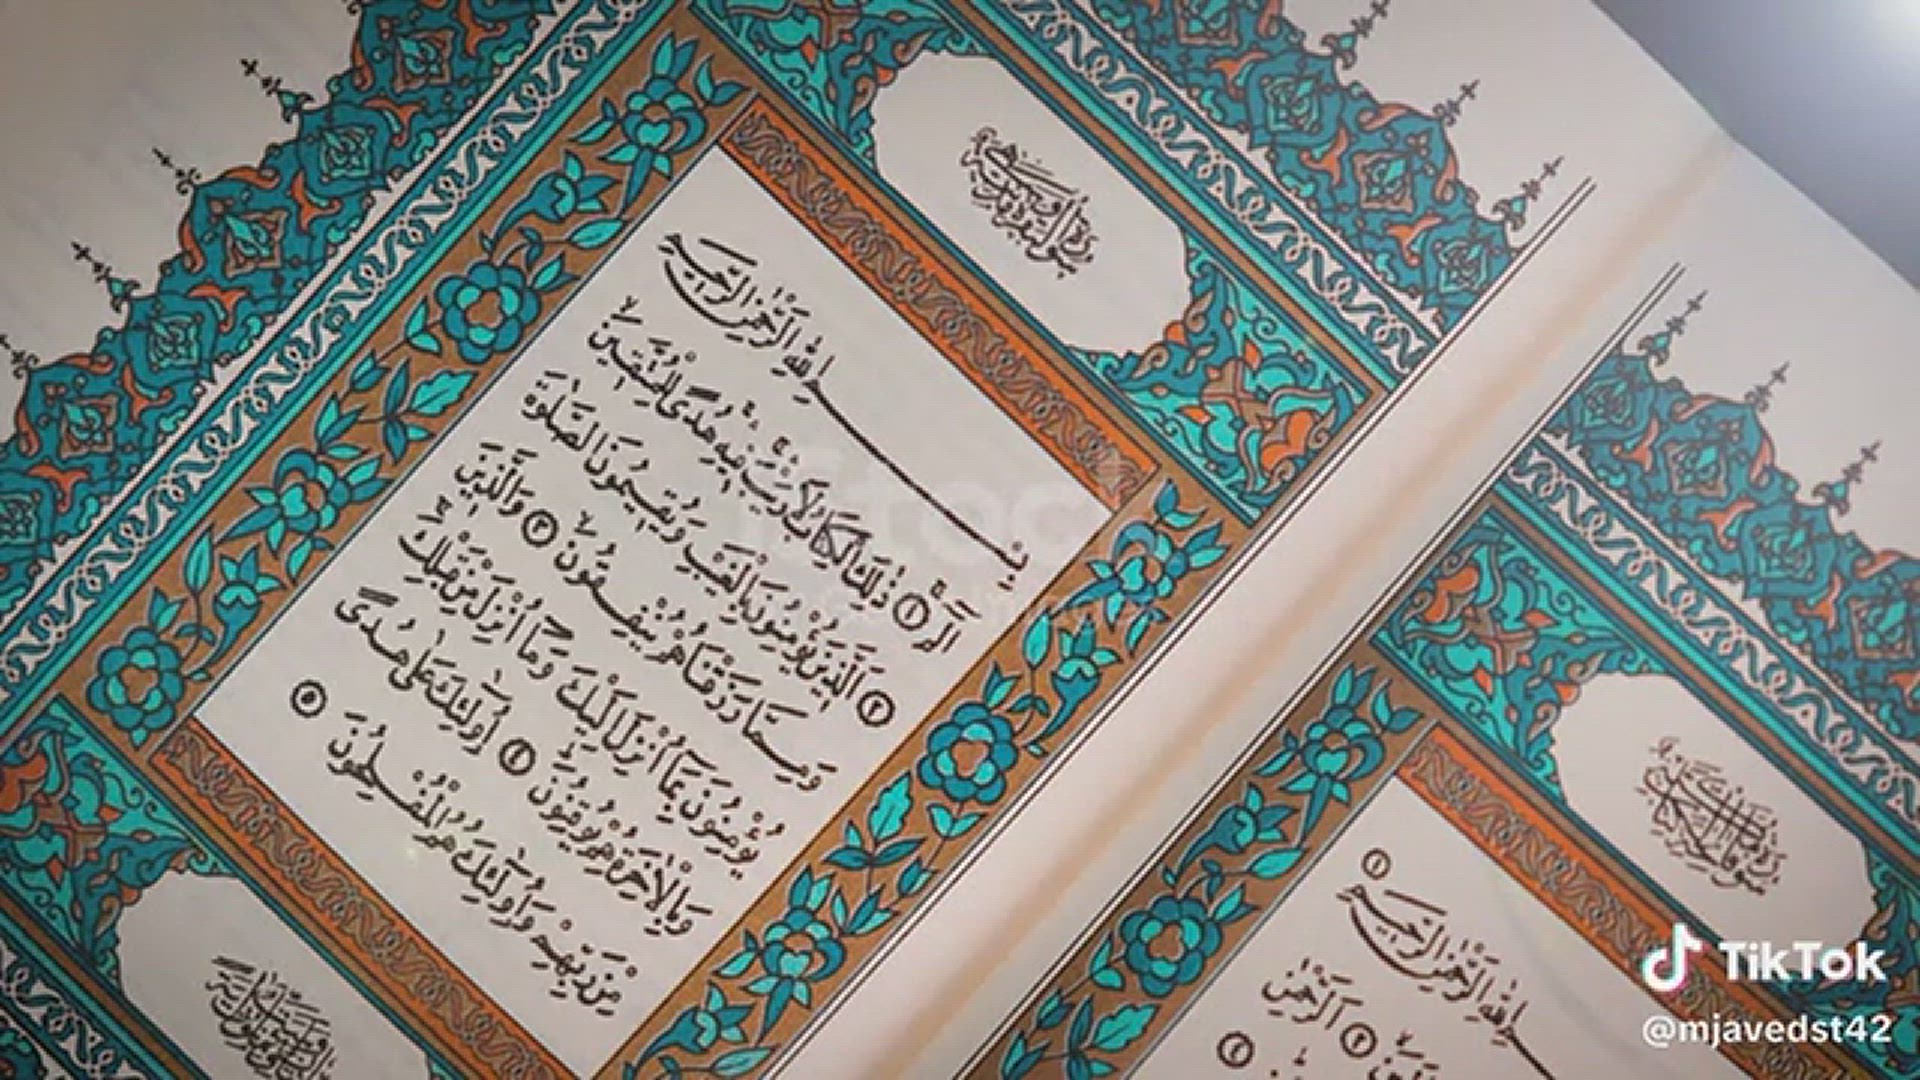 بِسْمِ اللهِ الرَّحْمٰنِ الرَّحِيمِ
الٓمّٓ ١ ذٰلِكَ الْكِتَابُ لَا رَيْبَ فِيهِ هُدًى لِلْمُتَّقِينَ
٢ الَّذِينَ يُؤْمِنُونَ بِالْغَيْبِ وَيُقِيمُونَ الصَّلٰوةَ
وَمِمَّا رَزَقْنَاهُمْ يُنْفِقُونَ ٣ وَالَّذِينَ
يُؤْمِنُونَ بِمَا أُنْزِلَ إِلَيْكَ وَمَا أُنْزِلَ مِنْ قَبْلِكَ
وَبِالْاٰخِرَةِ هُمْ يُوقِنُونَ ٤ أُولٰئِكَ عَلٰى هُدًى
مِنْ رَبِّهِمْ وَأُولٰئِكَ هُمُ الْمُفْلِحُونَ ٥
بِسْمِ اللهِ الرَّحْمٰنِ الرَّحِيمِ ١
الرَّحْمٰنِ
TikTok
@mjavedst42